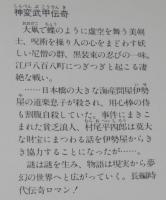 しんぺんぶこうでんき
神変武甲伝奇
大凧で蝶のように虚空を舞う美剣
士、呪術を操り人の心をまどわす妖
しい尼僧の群、黒装束の忍びの一味。
江戸八百八町につぎつぎと起こる凄
絶な戦い。
……日本橋の大きな海産問屋伊勢
屋の道楽息子が殺され、用心棒の侍
も割腹自殺していた。事件にまきこ
まれた貧乏浪人、村尾平四郎は莫大
な財宝にまつわる話を伊勢屋からき
き協力することになったが……。
謎は謎を生み、物語は現実から夢
幻の世界へと広がっていく。長編時
代伝奇ロマン！